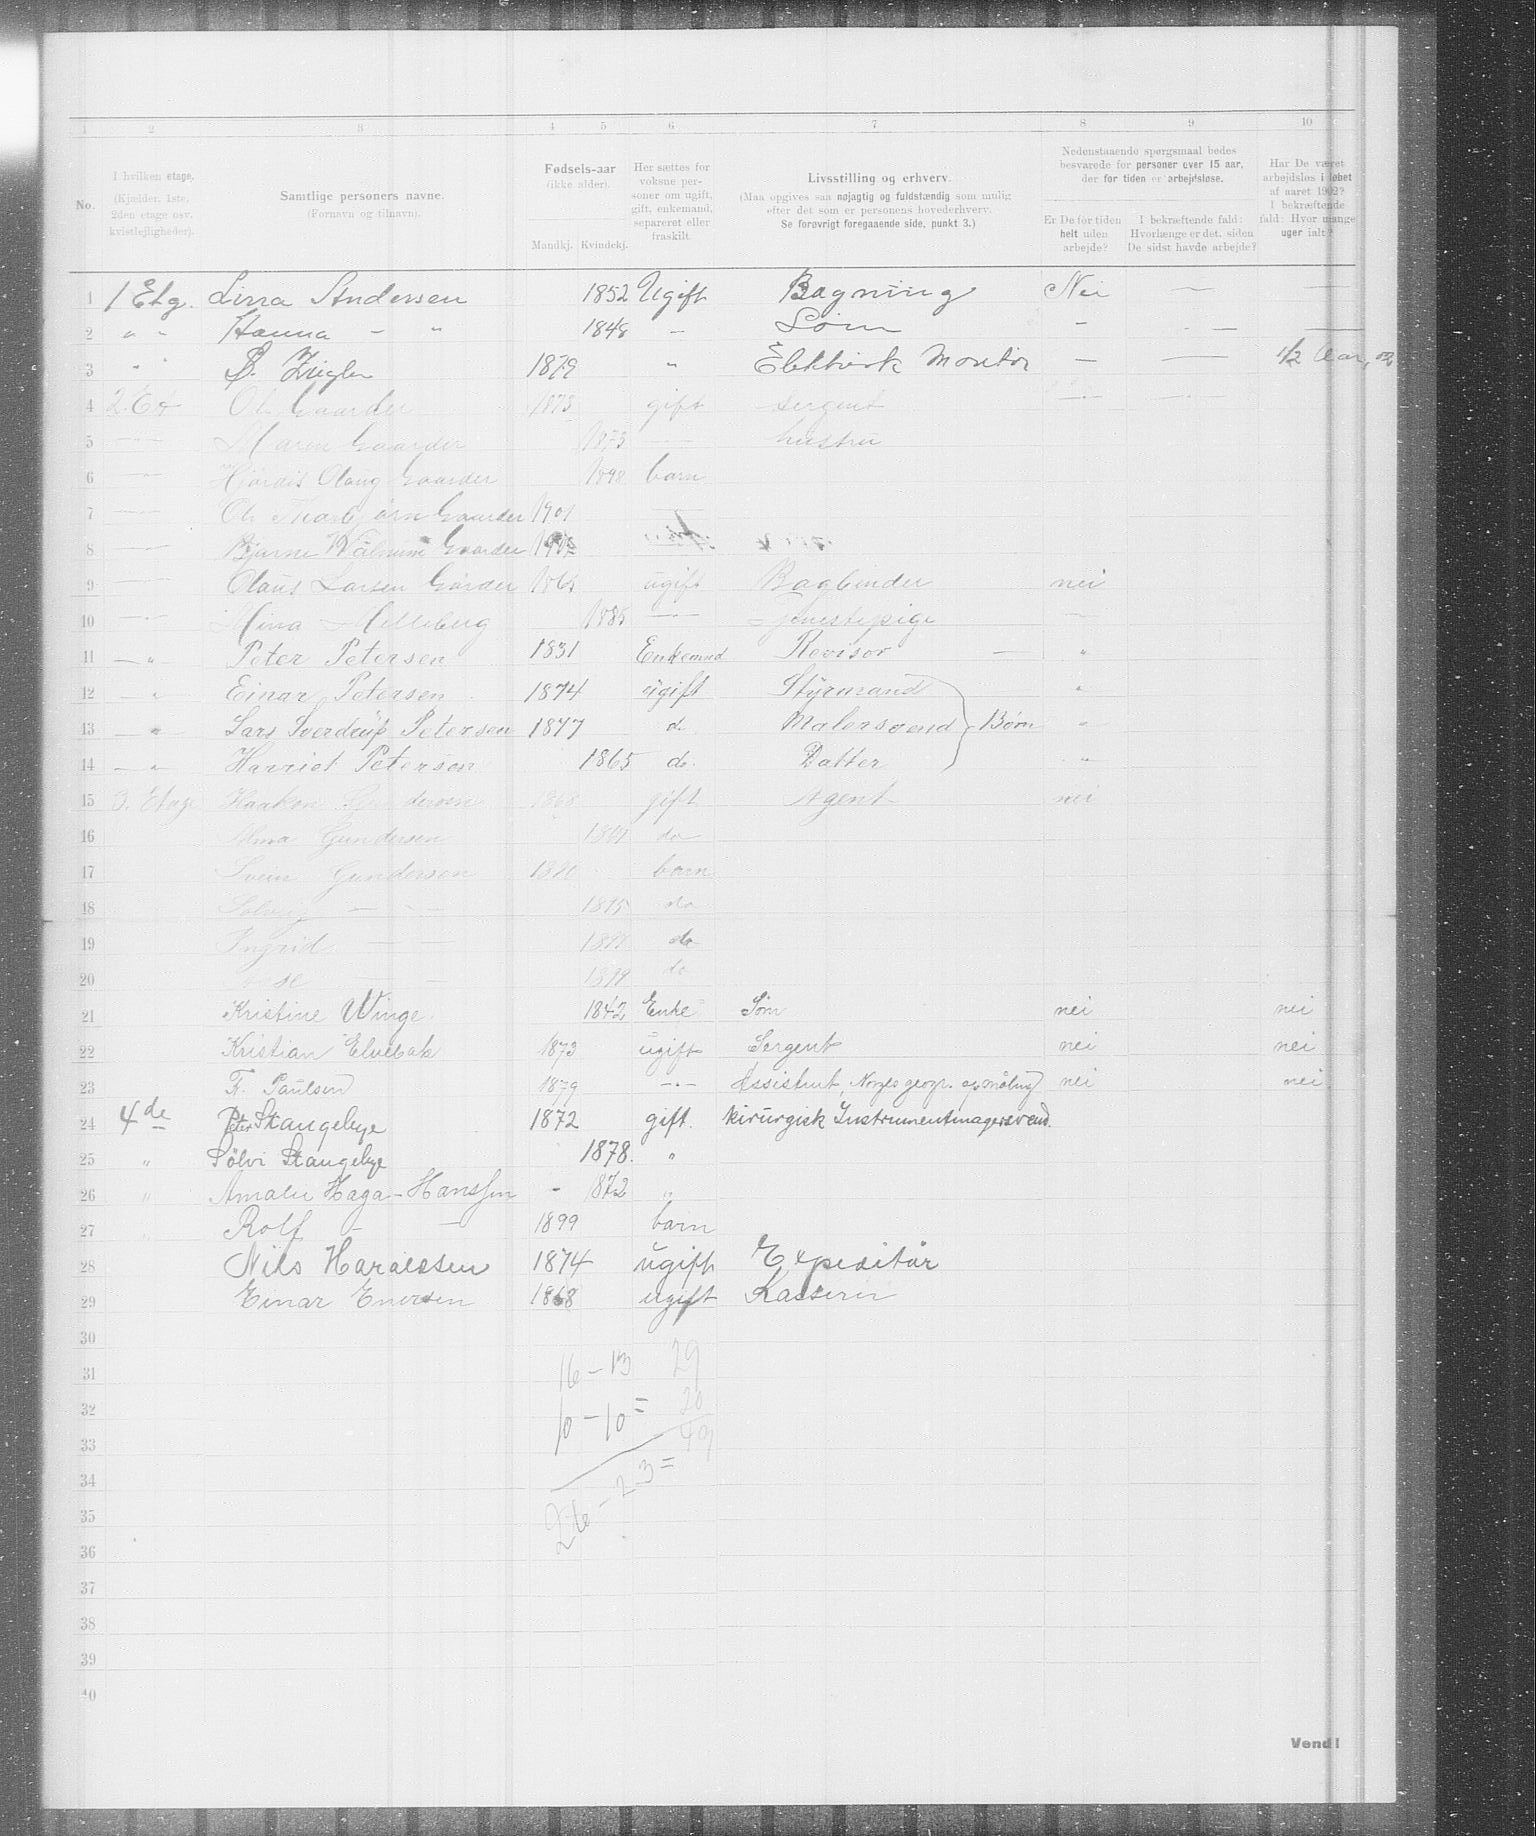 1 2 3 4 5 6 7 8 9 10
No.
I hvilken etage. (Kjælder, 1ste, 2den etage osv. kvistlejligheder).
Samtlige personers navne. (Fornavn og tilnavn).
Fødsels-aar (ikke alder). Mandkj. Kvindekj.
Her sættes for voksne personer om ugift, gift, enkemand, separeret eller fraskilt.
Livsstilling og erhverv. (Maa opgives saa nøjagtig og fuldstændig som mulig efter det som er personens hovederhverv. Se forøvrigt foregaaende side, punkt 3.)
Nedenstaaende spørgsmaal bedes besvarede for personer over 15 aar, der for tiden er arbejdsløse.
Er De for tiden helt uden arbejde?
I bekræftende fald: Hvorlænge er det, siden De sidst havde arbejde?
Har De været arbejdsløs i løbet af aaret 1902? I bekræftende fald: Hvor mange uger ialt?
1 1 Etg. Lina Andersen 1852 Ugift Bagning Nei — —
2 " " Hanna - " 1848 — Søm - - — —
3 " " 1879 " Elektrisk Montør — — 1/2 Aar,
4 2. Et Ol. Gaarder 1873 gift Sergent
5 — Maren Gaarder 1873 — hustru
6 — Hjørdis Olaug Gaarder 1898 barn
7 — Ol. Thorbjørn Gaarder 1901 —
8 — Bjarne Gaarder 1902
9 — Olaus Larsen Gårder 1865 ugift Bagbinder nei
10 — Mina Melleberg 1885 — Tjenestepige —
11 — " Peter Petersen 1831 Enkemnd Revisor — "
12 — " Einar Petersen 1874 ugift Styrmand "
13 — " Lars Sverdrup Petersen 1877 d. Malersvend } Børn "
14 — " Harriet Petersen 1865 do. Datter "
15 3. Etage Haakon Gundersen 1868 gift Agent nei
16 Alma Gundersen 1864 do
17 Svein Gundersen 1890 barn
18 Solveig — " — 1895 do
19 Ingrid — — 1897 do
20 — — 1899 do
21 Kristine Winge. 1842 Enke Søm nei nei
22 Kristian Elvebak 1873 ugift Sergent nei nei
23 F. Paulsen 1879 — " — Assistent, Norges geogr. opmåling nei nei.
24 4de Peter Stangebye 1872 gift. kirurgisk Instrumentmagersvend.
25 " Sölvi Stangebye 1878. "
26 " Amalie Haga-Hanssen - 1872 "
27 " Rolf - — 1899 barn
28 Nils Haraldsen 1874 ugift Expeditör
29 Einar Enersen 1868 ugift Kasserer
30
31 16 - 13 29
32 10 - 10 = 20
33 49
34 26 - 23 =
35
36
37
38
39
40
Vend!